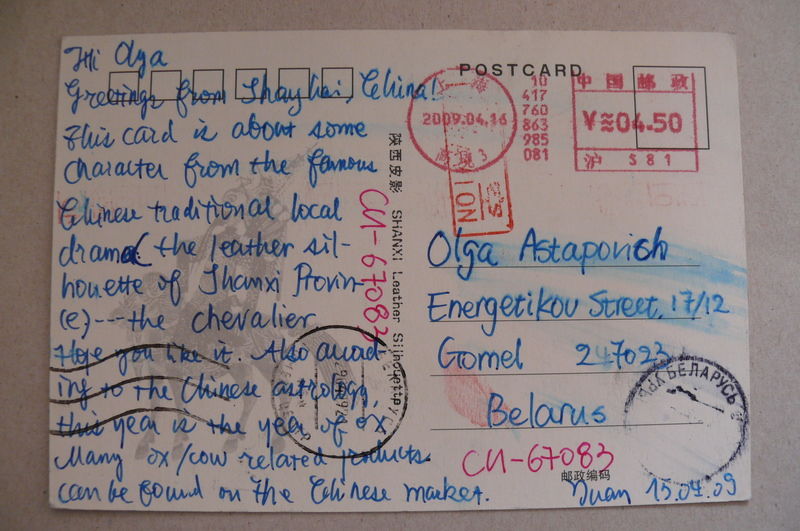 Hi Olga
Greetings from Shanghai, China!
This card is about some
character from the famous
Chinese traditional local
drama (the leather sil-
houette of Shanxi Provin-
ce)---the chevalier
Hope you like it. Also accord
ing to the Chinese astrology,
this year is the year of ox
Many ox/cow related products
can be found on the Chinese market.
CN-67083
陕西皮影 SHANXI Leather Silhouettpy
POSTCARD
2009.04.16
3
10
417
760
863
985
081
中国邮政
¥≈04.50
沪 S81
NOI
Olga Astapovich
Energetikov Street, 17/12
Gomel 247023
Belarus
БЕЛАРУСЬ
CN-67083
邮政编码
Juan 15.04.09